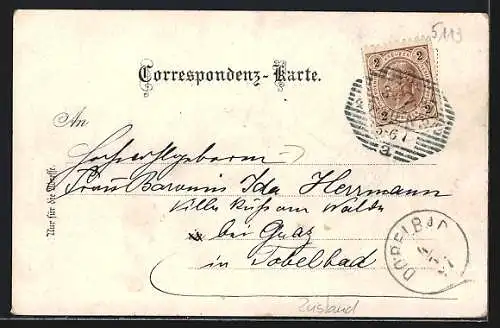 5113
Correspondenz-Karte.
2 2
2 2
5-6 N
a
An
Hochwohlgeboren
Frau Baronin Ida Herrmann
Villa Kuß am Walde
bei Graz
in Tobelbad
Nur für die Adresse.
DOBELBAD
Zustand